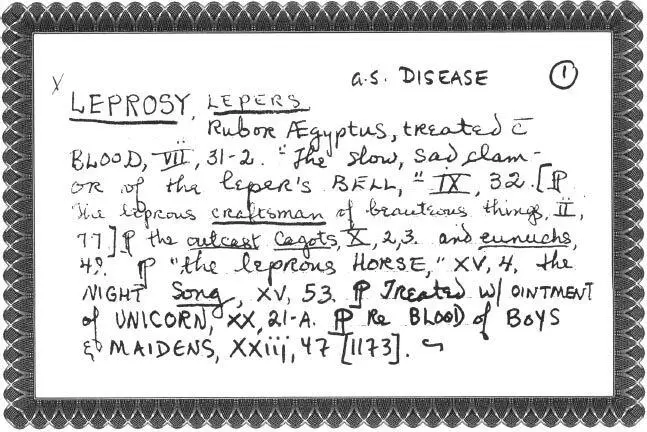 X a.s. DISEASE ①
LEPROSY, LEPERS
Rubor Ægyptus, treated c̄
BLOOD, VII, 31-2. "The slow, sad clam-
or of the leper's BELL," IX, 32. [¶
The leprous craftsman of beauteous things, II,
77] ¶ the outcast Cagots, X, 2,3. and eunuchs,
49. ¶ "the leprous HORSE," XV, 4. the
NIGHT Song, XV, 53. ¶ Treated w/ OINTMENT
of UNICORN, XX, 21-A. ¶ Re BLOOD of BOYS
& MAIDENS, XXiij, 47 [1173].